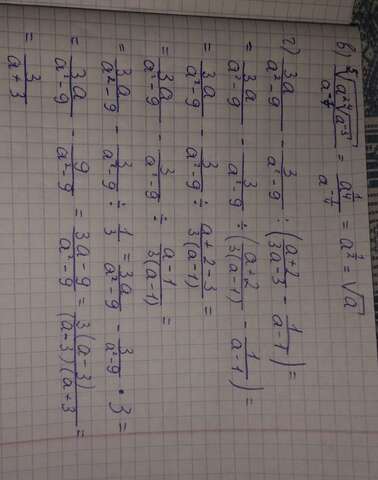 в) ⁵√(a²⁴√(a⁻⁵)) / a^(-1/4) = a^(1/4) / a^(-1/4) = a^(1/2) = √a
г) 3a/(a²-9) - 3/(a²-9) : ((a+2)/(3a-3) - 1/(a-1)) =
= 3a/(a²-9) - 3/(a²-9) ÷ ((a+2)/(3(a-1)) - 1/(a-1)) =
= 3a/(a²-9) - 3/(a²-9) ÷ (a+2-3)/(3(a-1)) =
= 3a/(a²-9) - 3/(a²-9) ÷ (a-1)/(3(a-1)) =
= 3a/(a²-9) - 3/(a²-9) ÷ 1/3 = 3a/(a²-9) - 3/(a²-9) · 3 =
= 3a/(a²-9) - 9/(a²-9) = (3a-9)/(a²-9) = 3(a-3)/((a-3)(a+3) =
= 3/(a+3)